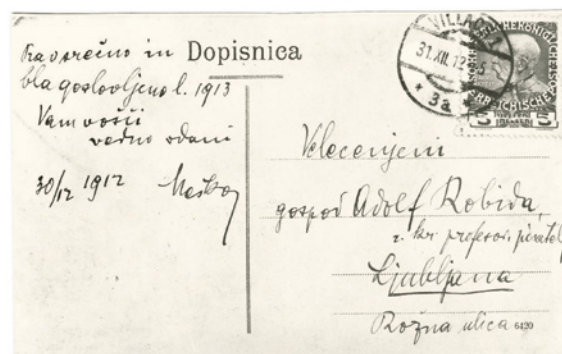 Dopisnica
Prav srečno in
blagoslovljeno l. 1913
Vam vošči
vedno vdani
30/12 1912 Meško
VILLACH 1
31.XII.12
* 3a *
Velecenjeni
gospod Adolf Robida,
c. kr. profesor, pisatelj
Ljubljana
Rožna ulica 6420